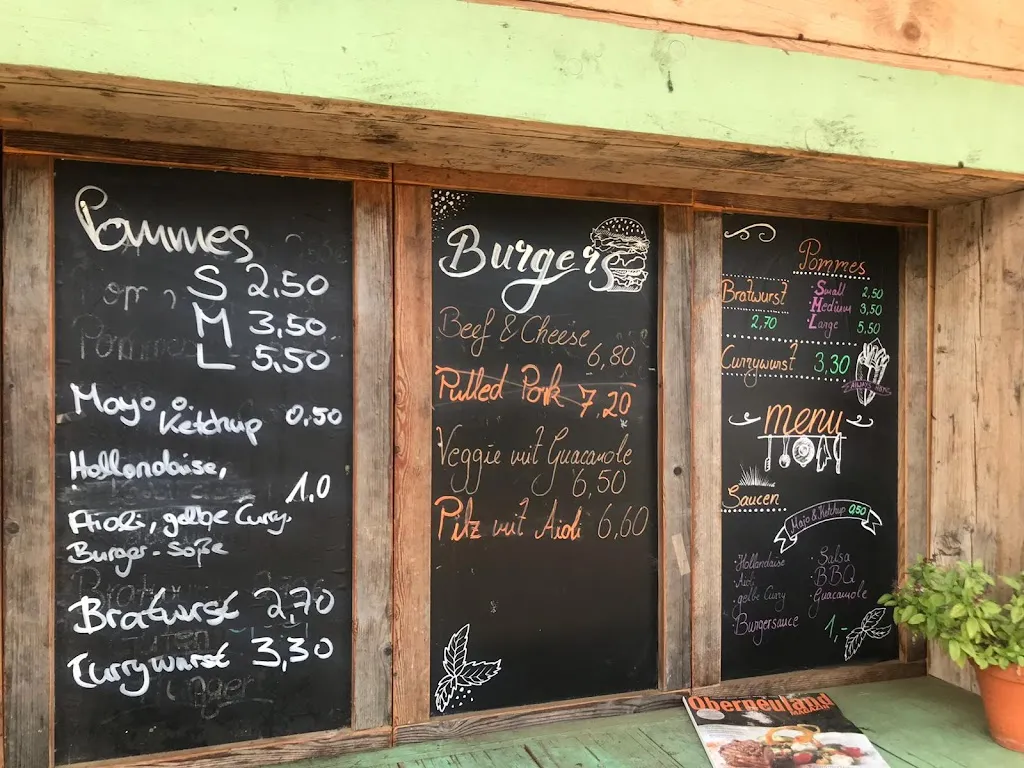 Pommes
S 2,50
M 3,50
L 5,50
Mayo & Ketchup 0,50
Hollandaise,
1,0
Aioli, gelbe Curry,
Burger-Soße
Bratwurst 2,70
Currywurst 3,30
Burgers
Beef & Cheese
6,80
Pulled Pork 7,20
Veggie mit Guacamole
6,50
Pilz mit Aioli 6,60
Pommes
Small 2,50
Medium 3,50
Large 5,50
Bratwurst
2,70
Currywurst 3,30
menu
Saucen
Majo & Ketchup 0,50
Hollandaise
Aioli
gelbe Curry
Burgersauce
Salsa
BBQ
Guacamole
1,-
Oberneuland